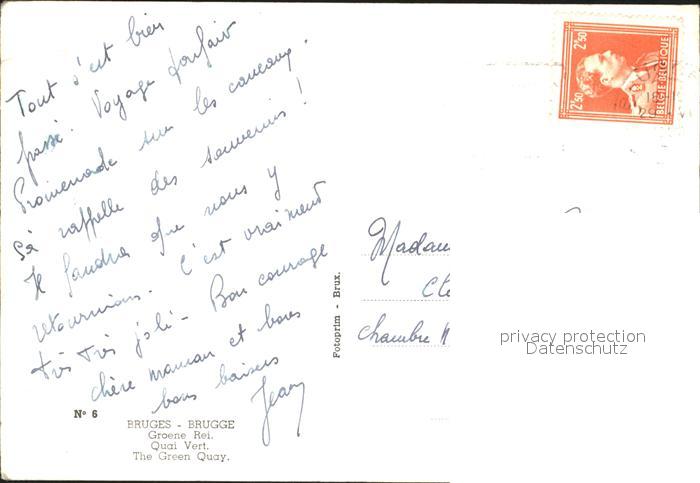 Tout s'est bien
passé. Voyage parfait
Promenade sur les canaux.
ça rappelle des souvenirs !
Il faudra que nous y
retournions. C'est vraiment
très très joli - Bon courage
chère maman et bons
bons baisers
Jean
No 6
BRUGES - BRUGGE
Groene Rei.
Quai Vert.
The Green Quay.
Fotoprim - Brux.
2.50
BELGIE-BELGIQUE
2.50
Madam
Chambre N
privacy protection
Datenschutz